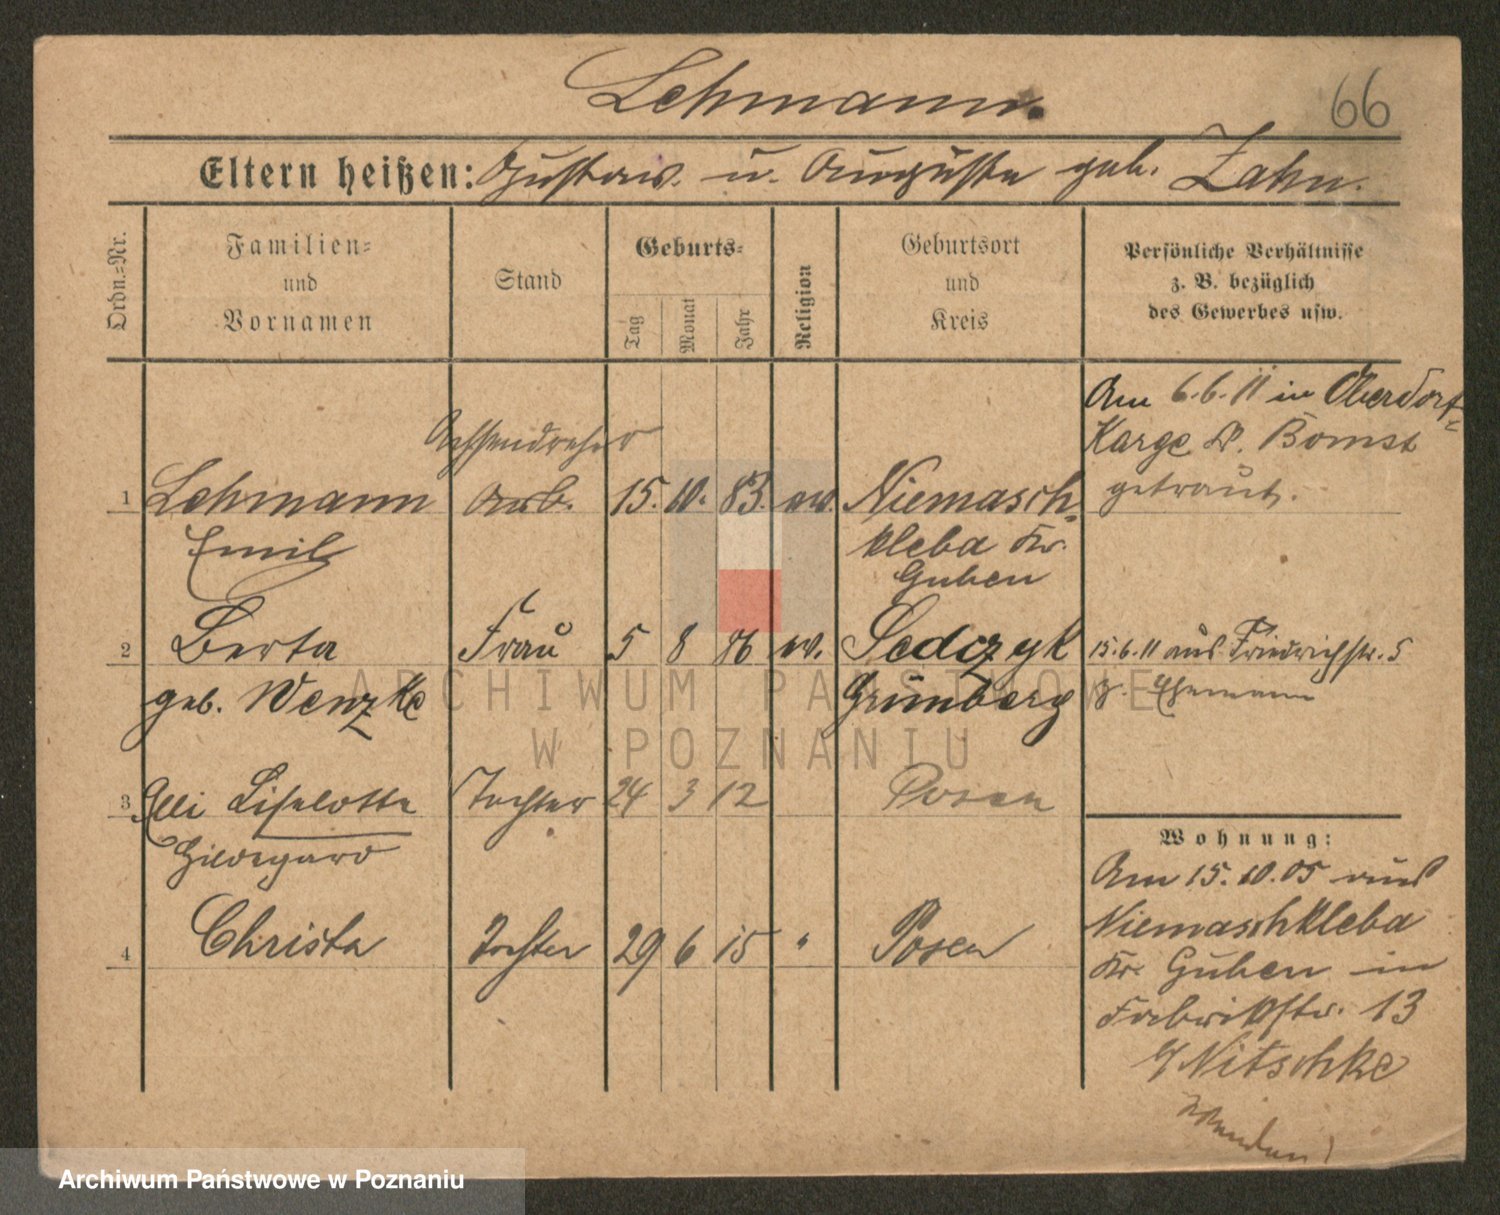 Lehmann.
66
Eltern heißen: Gustav. u. Auguste geb. Zahn.
Ordn.=Nr.
Familien= und Vornamen
Stand
Geburts=
Tag
Monat
Jahr
Religion
Geburtsort und Kreis
Persönliche Verhältnisse
z. B. bezüglich
des Gewerbes usw.
Am 6.6.11 in Oberdorf=
Karge Kr. Bomst
getraut.
Achsendreher
1 Lehmann Arb. 15. 10. 83. ev. Niemasch=
Emil kleba Kr.
Guben
2 Berta Frau 5 8 86 ev. Sedczyk 15.6.11 aus Friedrichstr. 5
geb. Wenzke Grünberg z. Ehemann
3 Elli Liselotte Tochter 24 3 12 Posen
Hildegard
4 Christa Tochter 29 6 15 " Posen
Wohnung:
Am 15.10.05 aus
Niemaschkleba
Kr. Guben in
Fabrikstr. 13
b/ Nitschke
Wenden!
ARCHIWUM PAŃSTWOWE
W POZNANIU
Archiwum Państwowe w Poznaniu